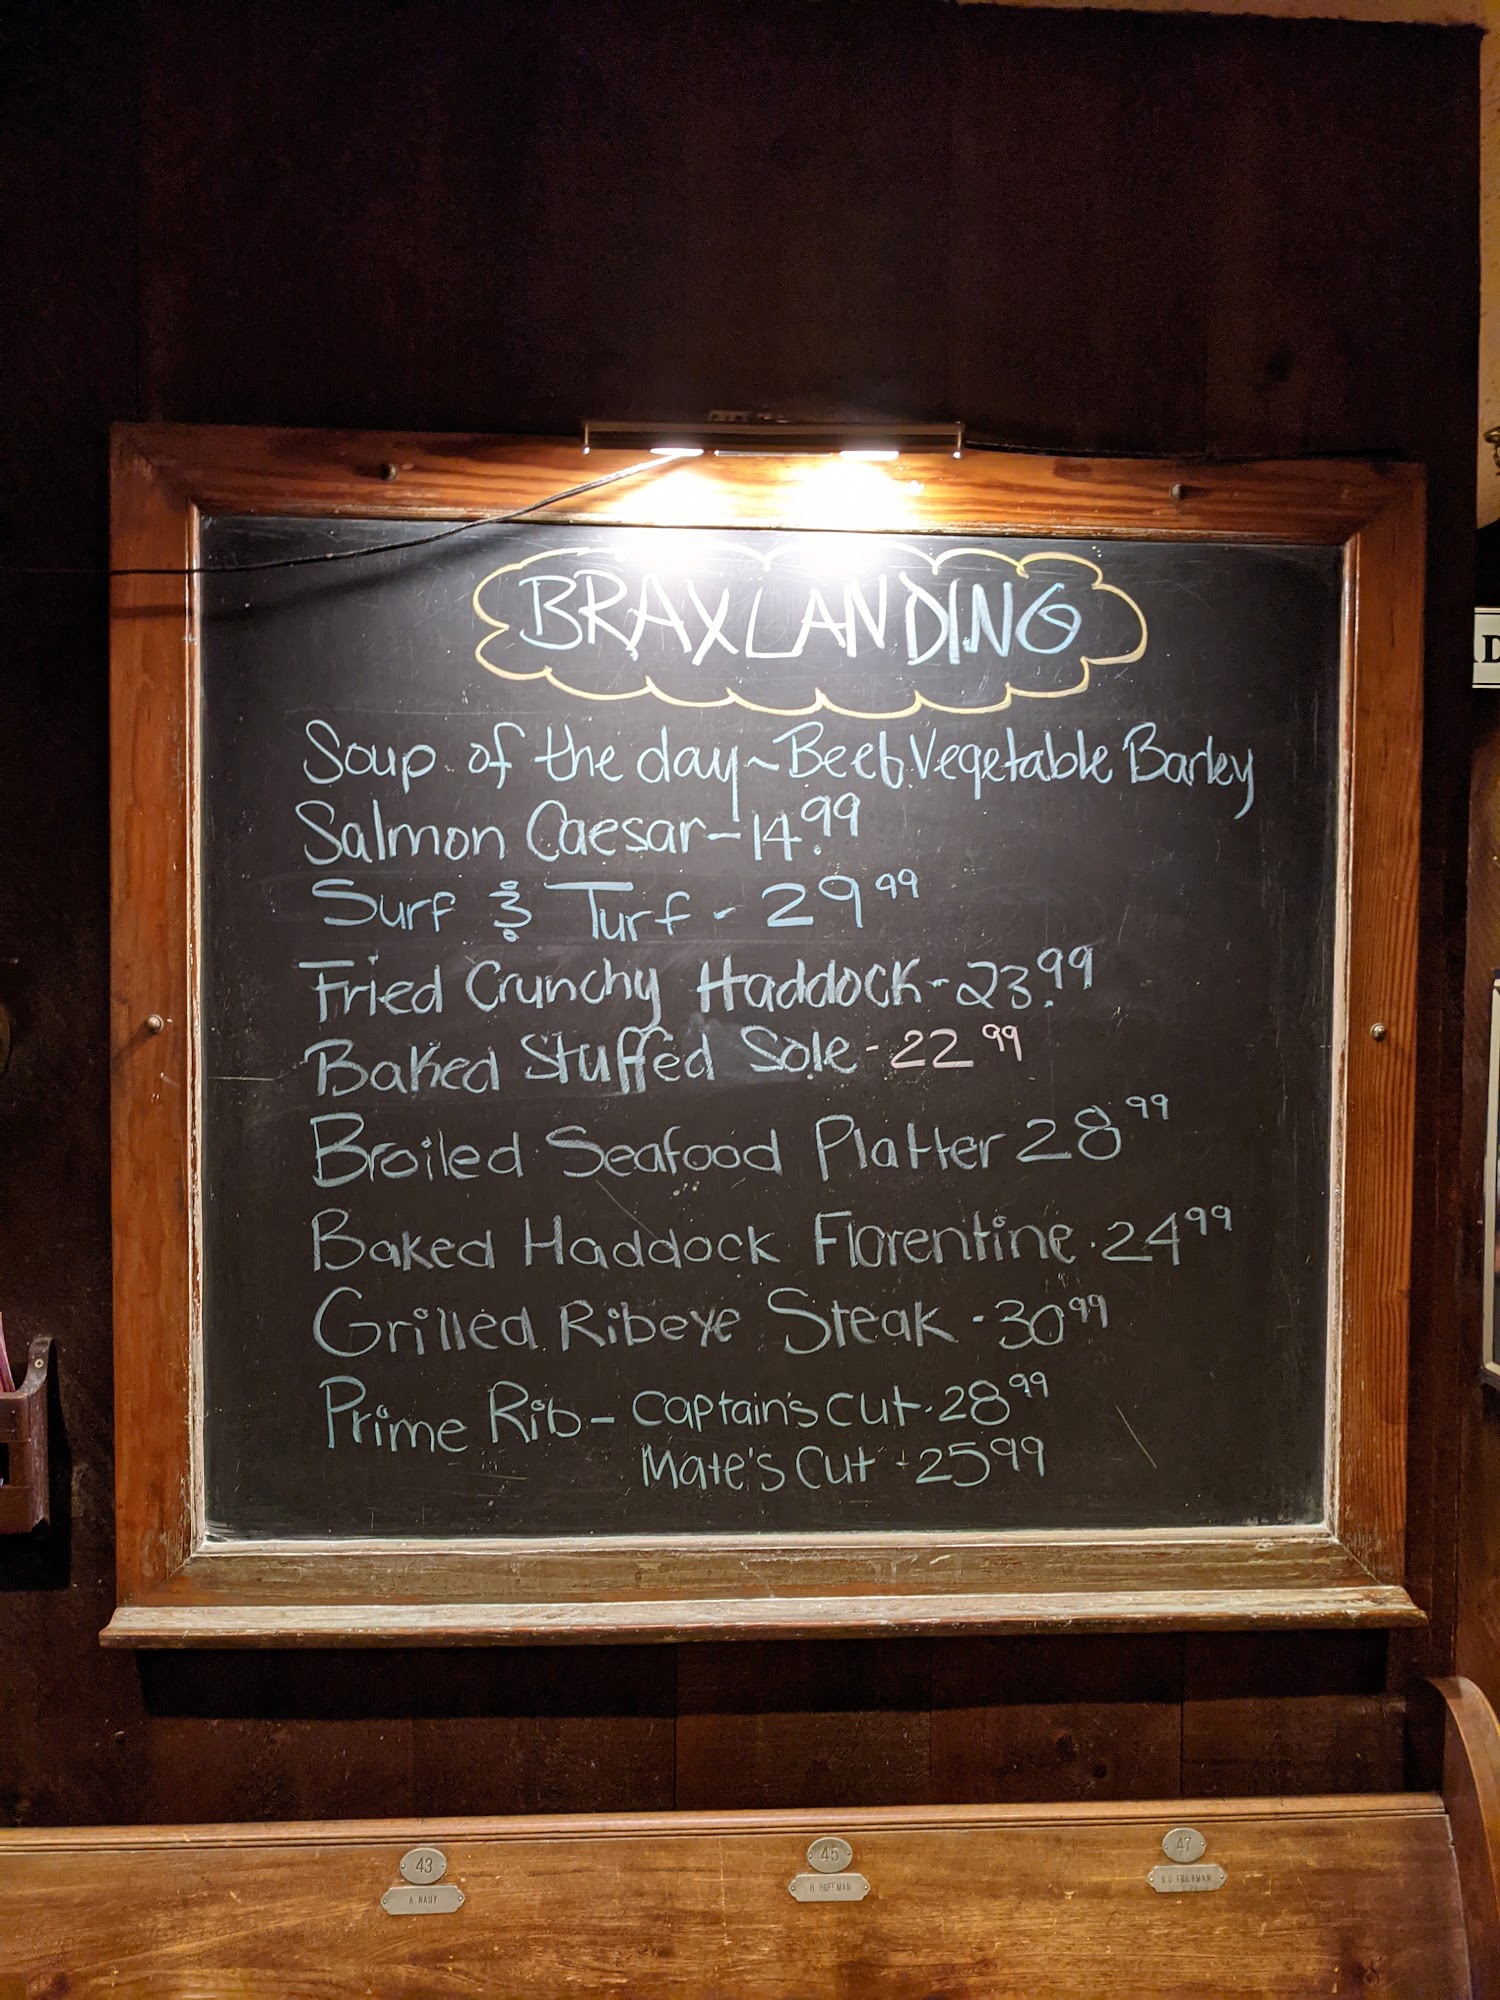 BRAX LANDING
Soup of the day ~ Beef Vegetable Barley
Salmon Caesar - 14.99
Surf & Turf - 29 99
Fried Crunchy Haddock - 23.99
Baked Stuffed Sole - 22 99
Broiled Seafood Platter 28 99
Baked Haddock Florentine - 24 99
Grilled Ribeye Steak - 30 99
Prime Rib - Captain's Cut - 28 99
Mate's Cut - 25 99
43
45
47
H. HOFFMAN